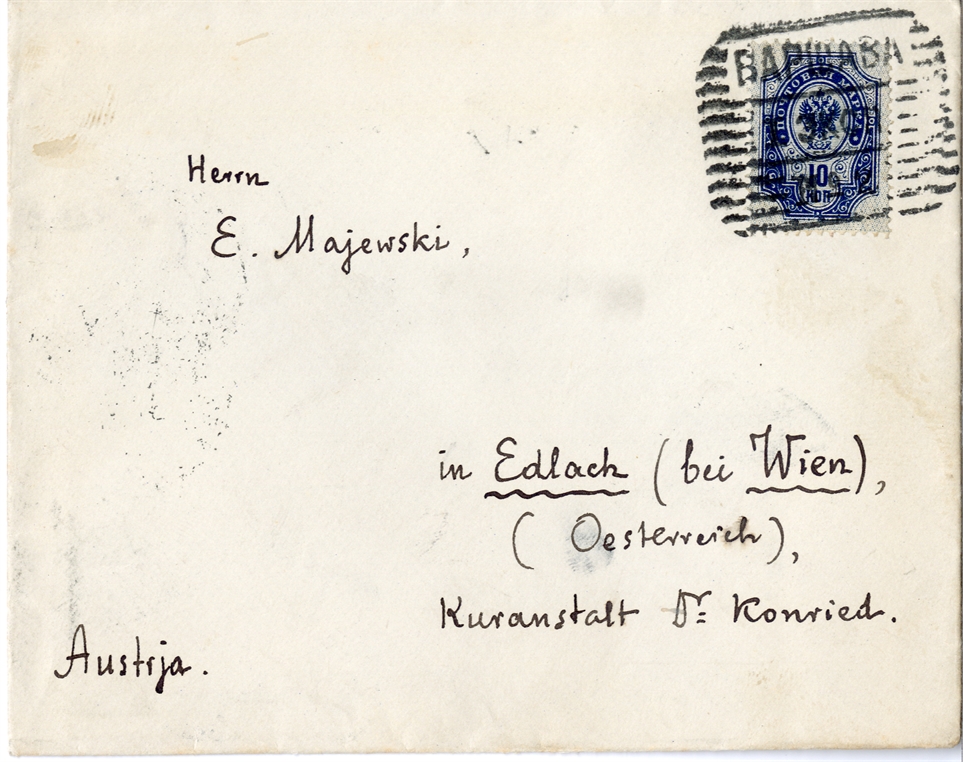 ВАРШАВА
ПОЧТОВАЯ МАРКА
10
КОП
Herrn
E. Majewski,
in Edlach (bei Wien),
(Oesterreich),
Kuranstalt Dr. Konried.
Austrja.